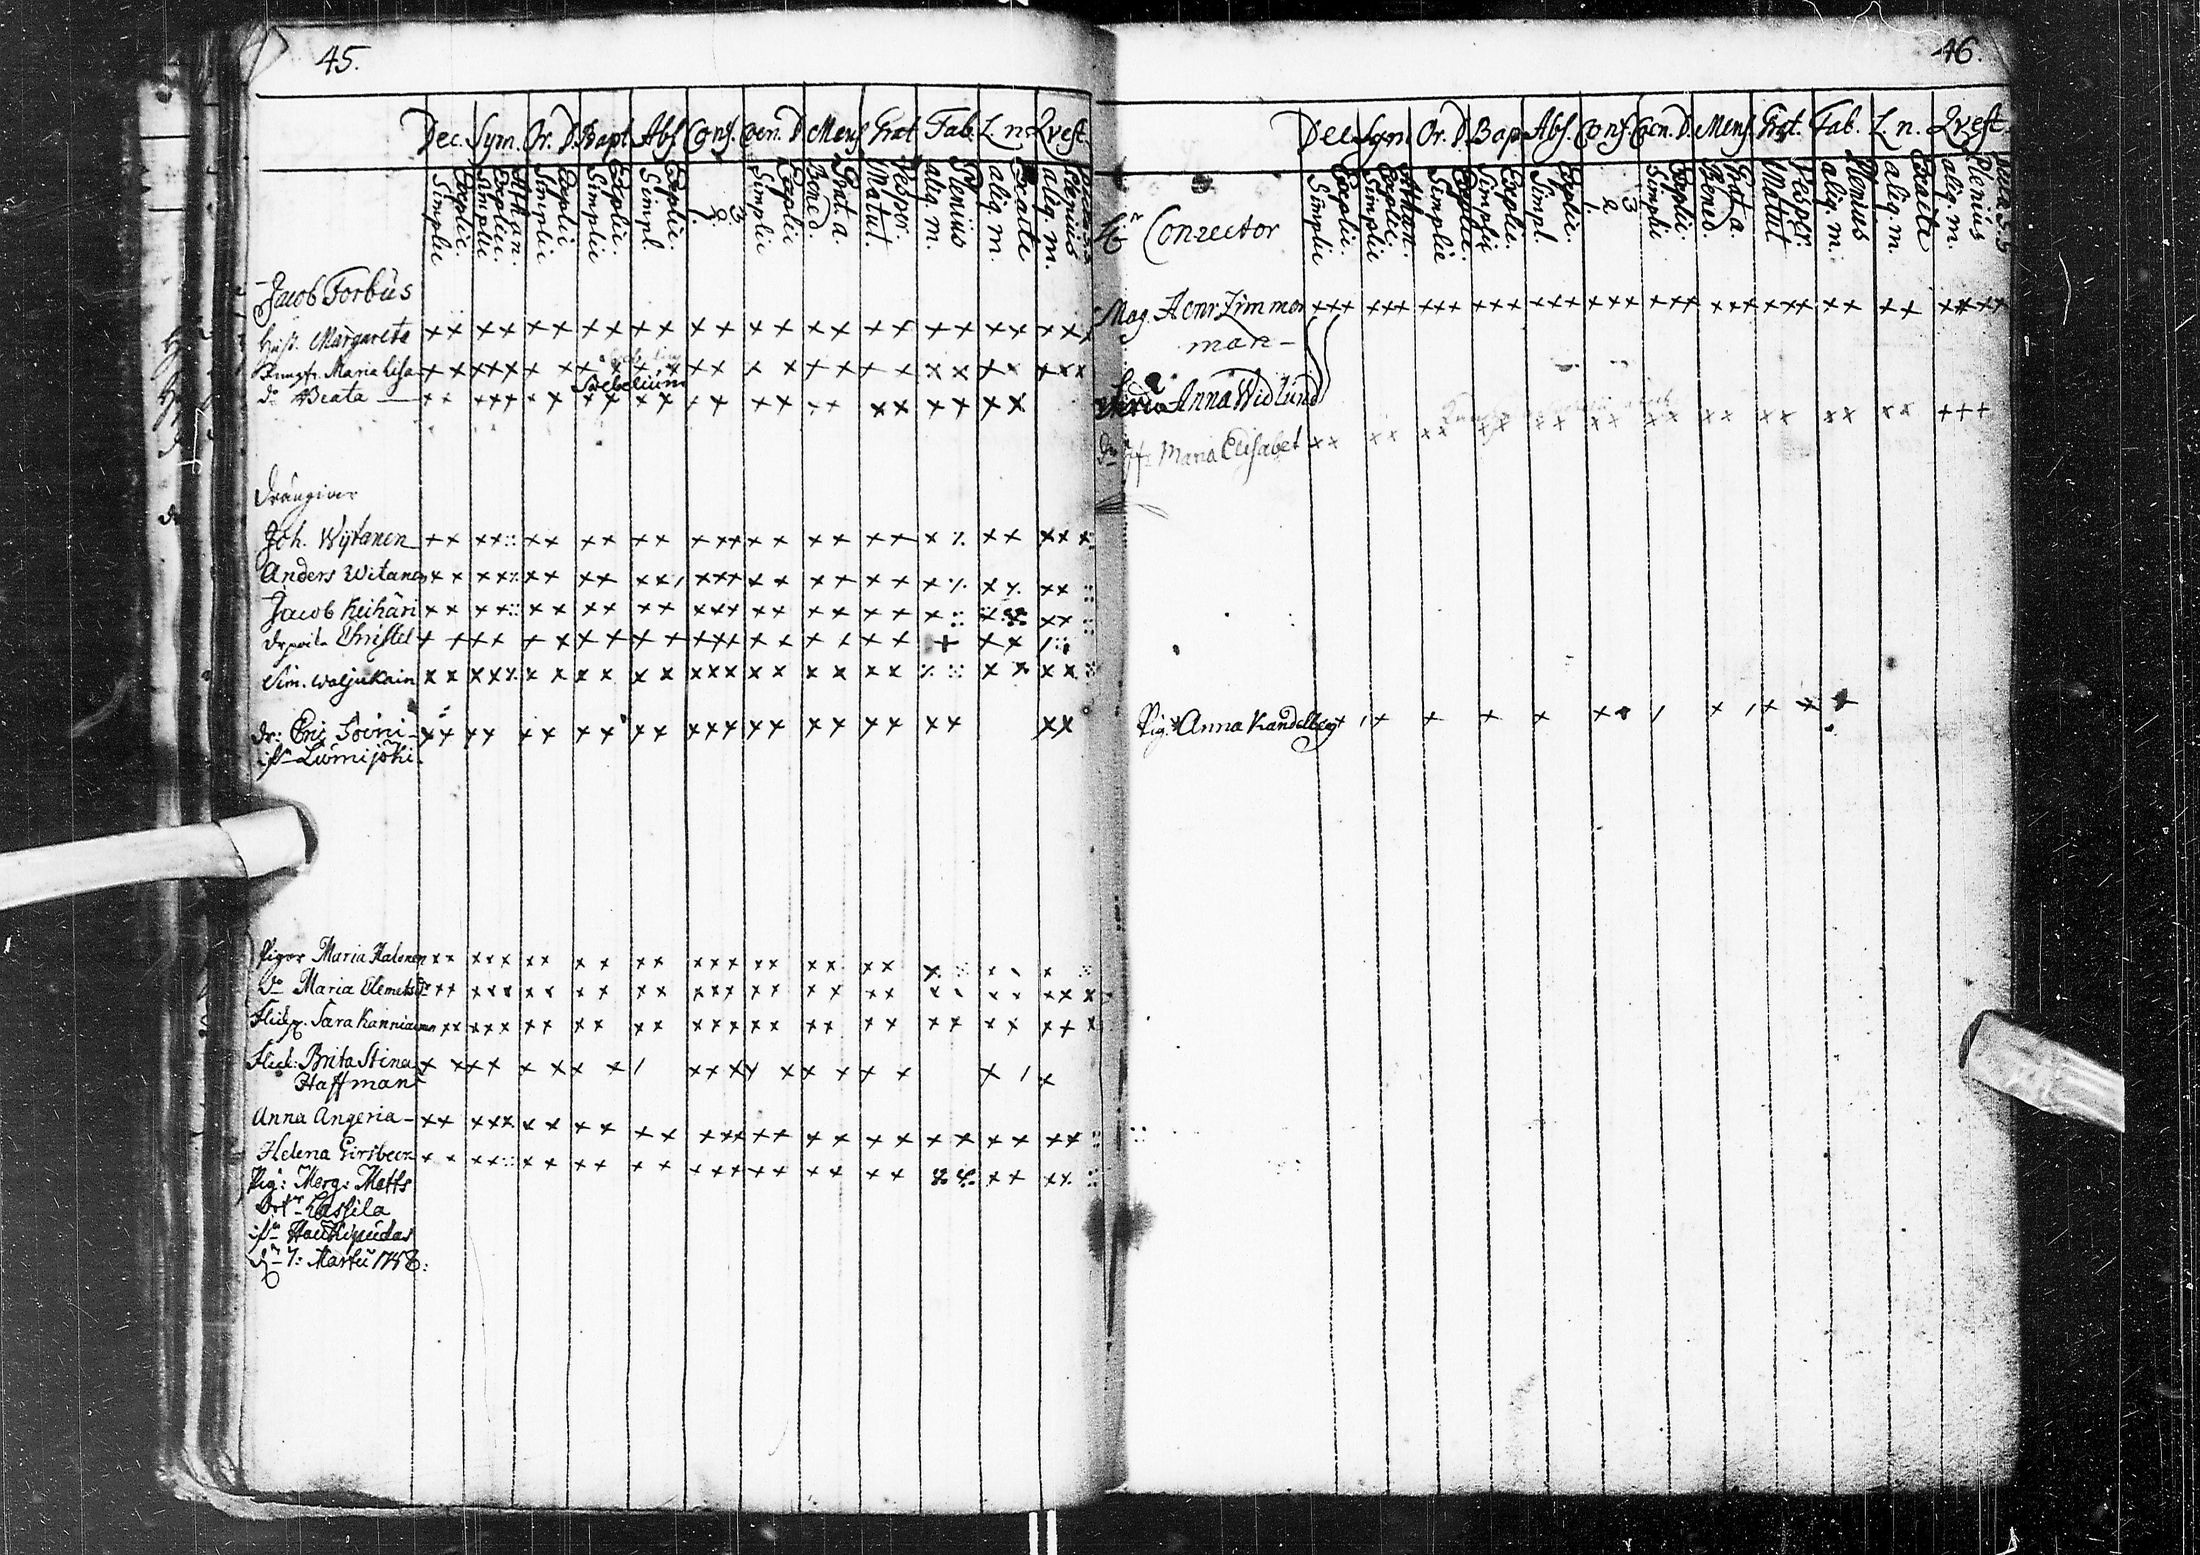 45.
Dec. Sym. Or. D. Bapt. Abs. Conf. Coen. D. Mens. Grat. Fab. L. n. Qvest.
Simplic. Explic. Simplic. Explic. Athan. Simplic. Explic. Simplic. Explic. Simpl. Explic. 1. 2. 3. Simplic. Explic. Bened. Grat. a. Matut. Vesper. aliq. m. Plenius aliq. m. Exacte aliq. m. Plenius
Jacob Forbus
Hust. Margareta
Jungfr. Maria Lisa
do Beata
Drängiar
Joh. Wytanen
Anders Witanen
Jacob Keihäri
Christel
Sim. Waljukain
dr: Eric Toivi
ifn Lumijoki
Pigor Maria Halonen
do Maria Clemetsdr
Flick. Sara Kanniainen
Flick: Brita Stina
Haffman
Anna Angeria
Helena Girsbeen
Pig: Marg: Matts
Dotr Lassila
ifn Haukipudas
dn 7: Martii 1748:
46.
Dec. Sym. Or. D. Bap. Abs. Conf. Coen. D. Mens. Grat. Fab. L. n. Qvest.
Simplic. Explic. Simplic. Explic. Athan. Simplic. Explic. Simplic. Explic. Simpl. Explic. 1. 2. 3. Simplic. Explic. Bened. Grat. a. Matut. Vesper. aliq. m. Plenius aliq. m. Exacte aliq. m. Plenius
Hr Conrector
Mag. Henr Zimmer
man
Anna Widlund
Maria Elisabet
Pig. Anna Kandelberg